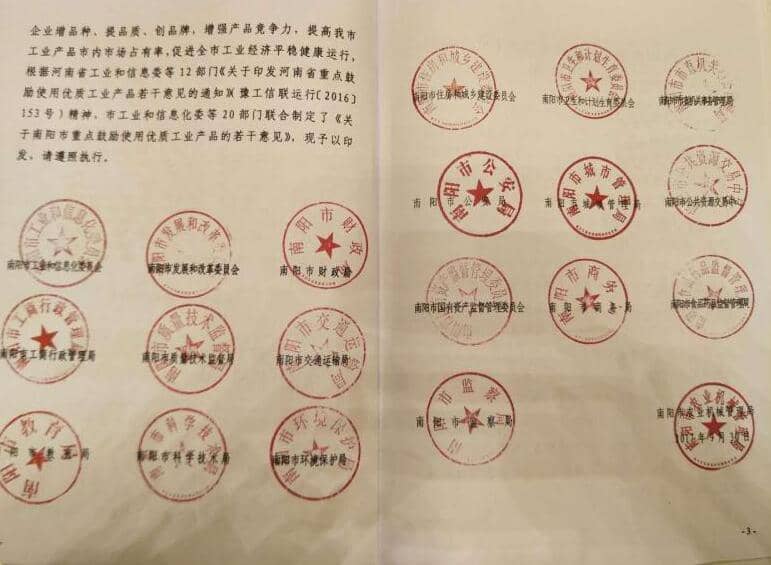 企业增品种、提品质、创品牌，增强产品竞争力，提高我市
工业产品市内市场占有率，促进全市工业经济平稳健康运行，
根据河南省工业和信息委等12部门《关于印发河南省重点鼓
励使用优质工业产品若干意见的通知》（豫工信联运行〔2016〕
153号）精神、市工业和信息化委等20部门联合制定了《关
于南阳市重点鼓励使用优质工业产品的若干意见》，现予以印
发，请遵照执行。
南阳市工业和信息化委员会 南阳市发展和改革委员会 南阳市财政局
南阳市工商行政管理局 南阳市质量技术监督局 南阳市交通运输局
南阳市教育局 南阳市科学技术局 南阳市环境保护局
南阳市住房和城乡建设委员会 南阳市卫生和计划生育委员会 南阳市市直机关事务管理局
南阳市公安局 南阳市城市管理局 南阳市公共资源交易中心
南阳市国有资产监督管理委员会 南阳市商务局 南阳市食品药品监督管理局
南阳市监察局 南阳市农业机械管理局
-3-